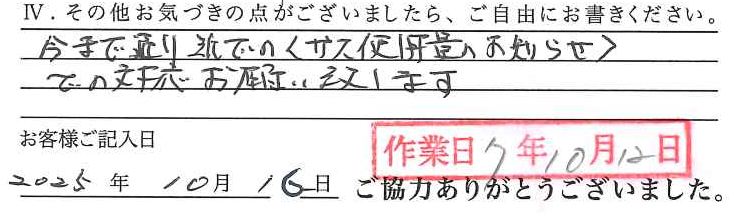 Ⅳ．その他お気づきの点がございましたら、ご自由にお書きください。
今まで通り 紙での〈ガス使用量のお知らせ〉
での対応お願い致します
お客様ご記入日
作業日 7年10月12日
2025年 10月 16日 ご協力ありがとうございました。